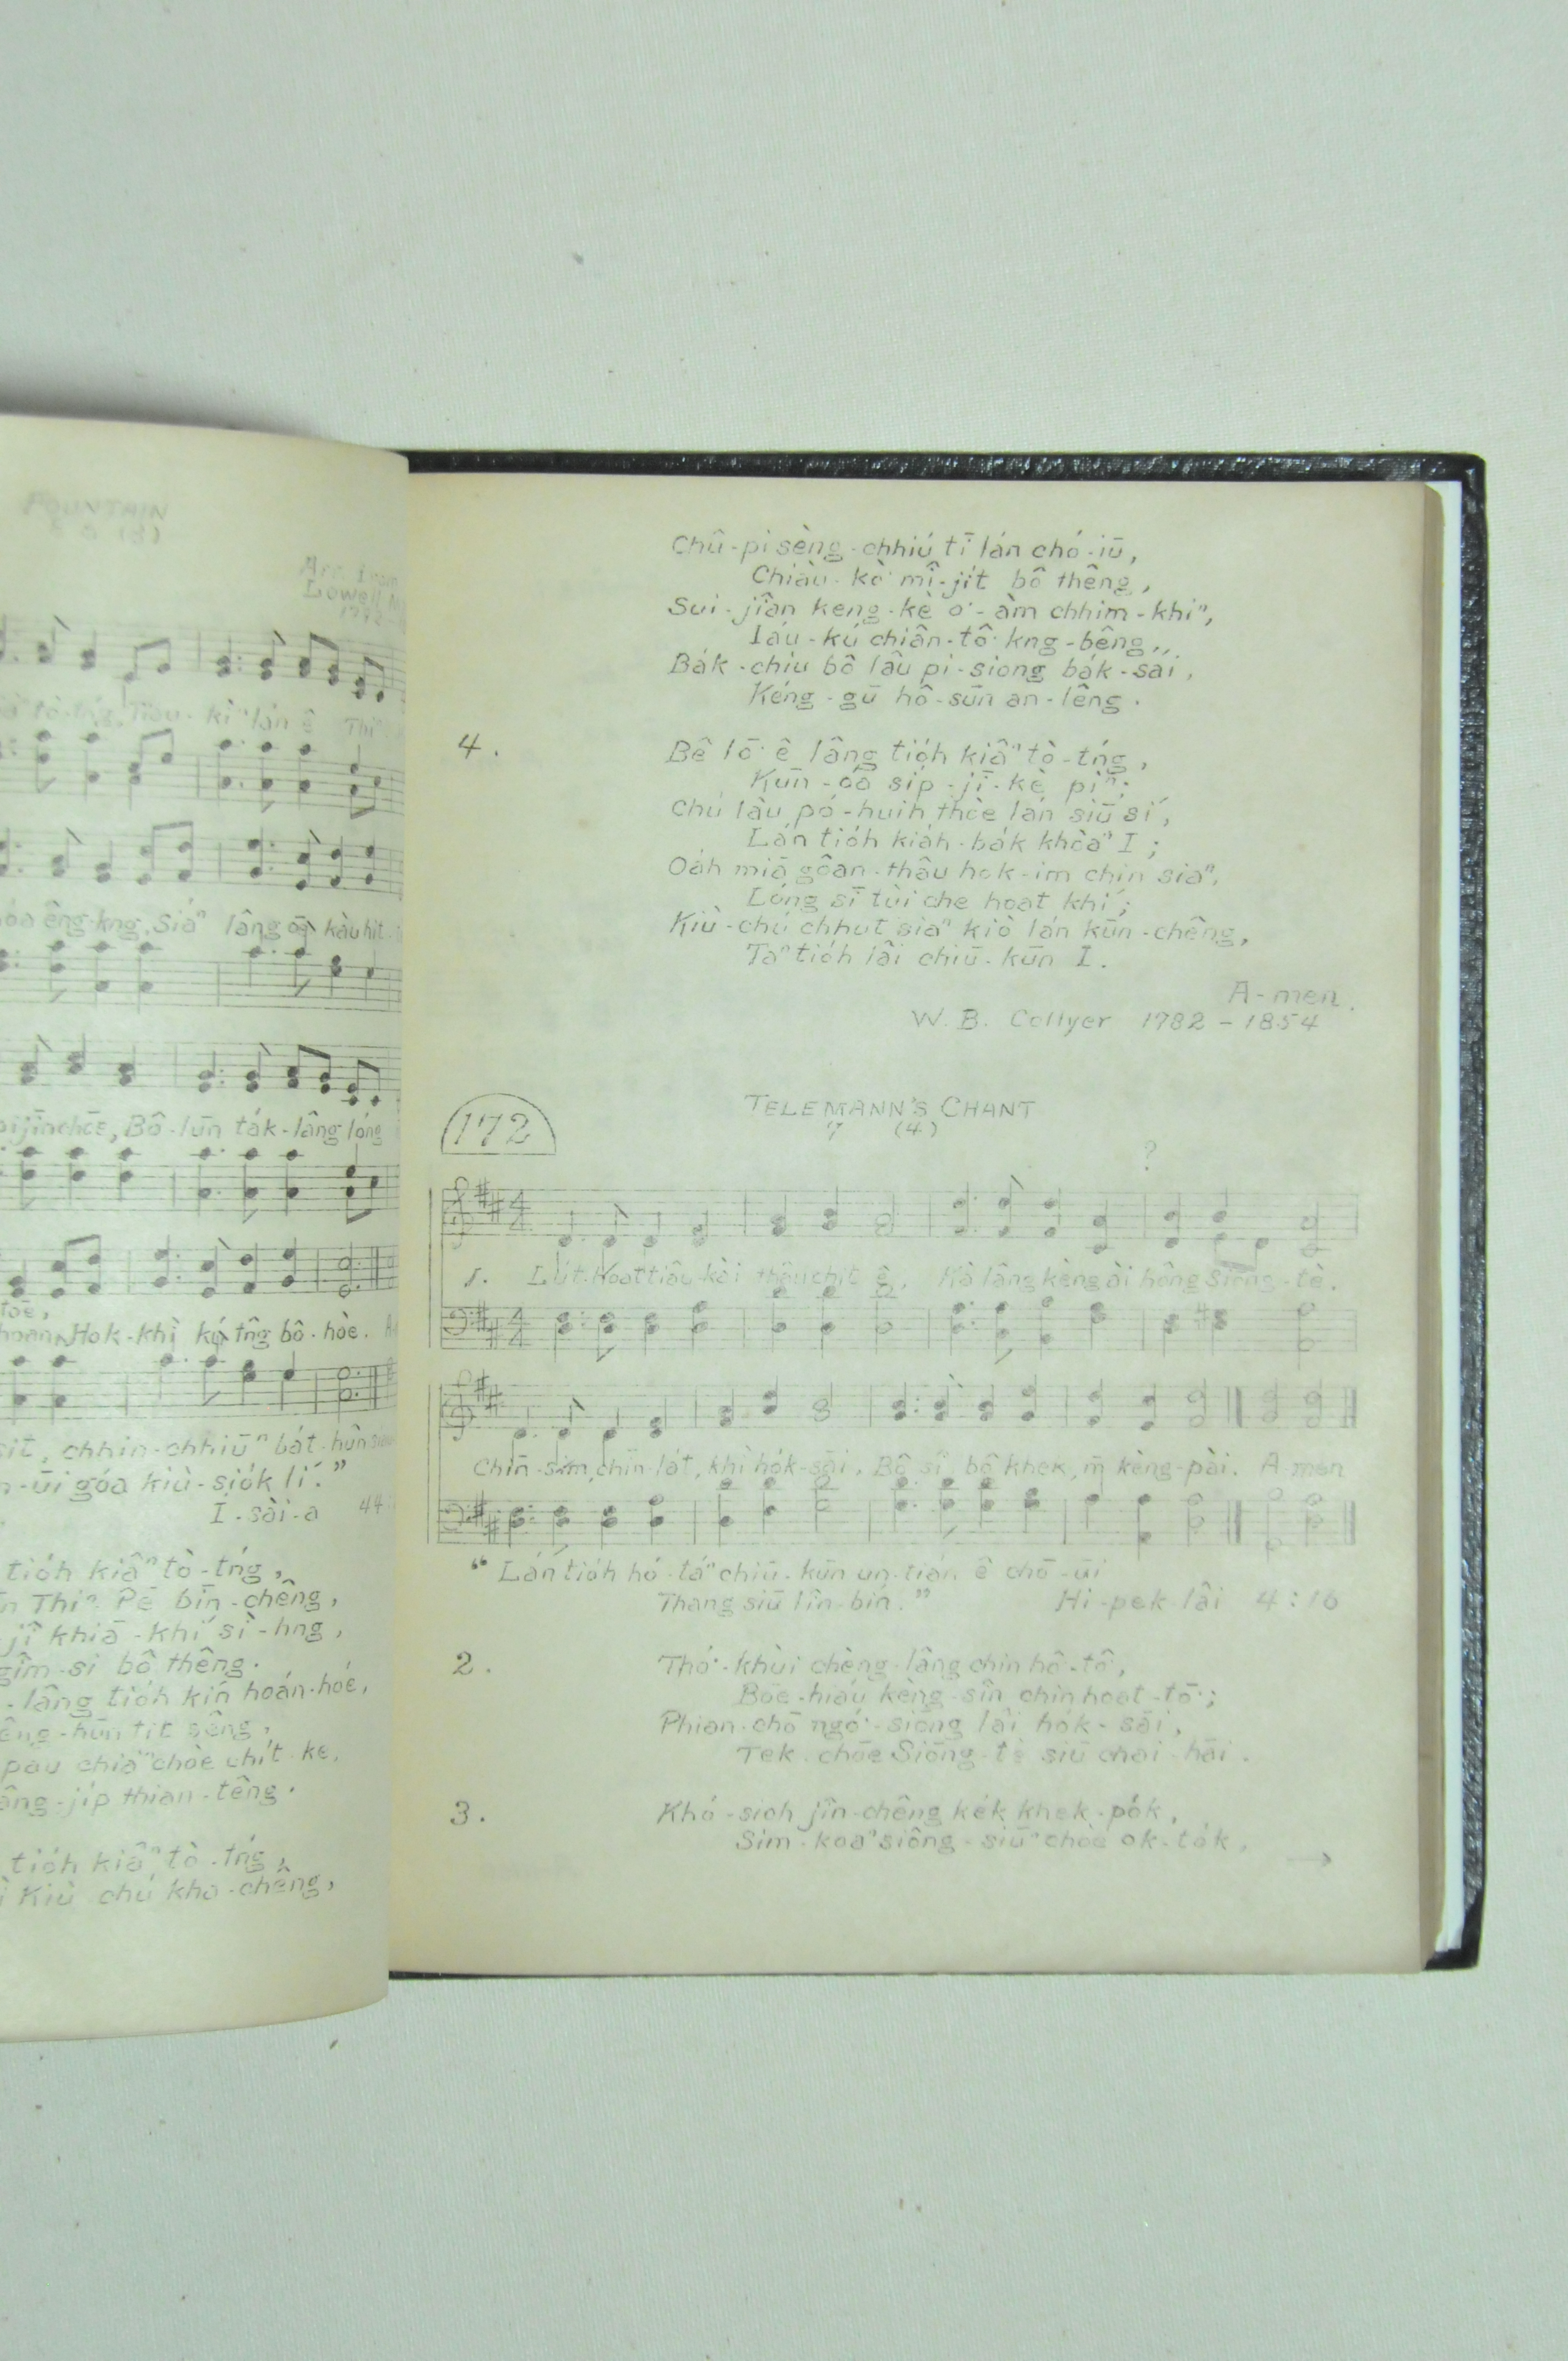 FOUNTAIN
Lowell
kàu hit
Bô-lūn ta̍k-lâng lóng
Hok-khì kú tn̂g bô-hòe.
chhin-chhiūⁿ ba̍t-hûn
-ūi góa kiù-sio̍k lí.”
Í-sài-a 44
tio̍h kiâⁿ tò-tńg,
Thiⁿ Pē bīn-chêng,
-jî khiā-khí sì-hng,
gîm-si bô thêng.
-lâng tio̍h kín hoán-hóe,
-ji̍p thian-têng.
tio̍h kiâⁿ tò-tńg,
Kiù chú kho-chêng,
Chû-pi sèng-chhiú tī lán chó-iū,
Chiàu-kò͘ mî-ji̍t bô thêng,
Sui-jiân keng-kè o͘-àm chhim-khiⁿ,
Iáu-kú chiân-tô͘ kng-bêng,,
Ba̍k-chiu bô lâu pi-siong ba̍k-sái,
Kéng-gū hô-sūn an-lêng.
4. Bê lō͘ ê lâng tio̍h kiâⁿ tò-tńg,
Kūn-óa si̍p-jī-kè piⁿ;
Chú lâu pó-huih thòe lán siū sí,
Lán tio̍h kia̍h-ba̍k khòaⁿ I;
Oa̍h miā gôan-thâu hok-im chin siaⁿ,
Lóng sī tùi che hoat khí;
Kiù-chú chhut siaⁿ kiò lán kūn-chêng,
Taⁿ tio̍h lâi chiū-kūn I.
A-men.
W. B. Collyer 1782 – 1854
172
TELEMANN'S CHANT
7 (4)
?
1. Lu̍t-hoat tiâu-kài thâu chi̍t ê, Kà lâng kèng ài hông Siōng-tè.
Chīn-sim, chīn-la̍t, khì ho̍k-sāi, Bô sî bô khek, m̄ kèng-pài. A men
“Lán tio̍h hó-táⁿ chiū-kūn un-tián ê chō-ūi
Thang siū lîn-bín.” Hi-pek-lâi 4:16
2. Thó͘-khùi chèng-lâng chin hô͘-tô͘,
Bōe-hiáu kèng-sîn chin hoat-tō͘;
Phian-chō ngó͘-siōng lâi ho̍k-sāi,
Tek-chōe Siōng-tè siū chai-hāi.
3. Khó-sioh jîn-chêng ke̍k khek-po̍k,
Sim-koaⁿ siông-siūⁿ chòe ok-to̍k,
→